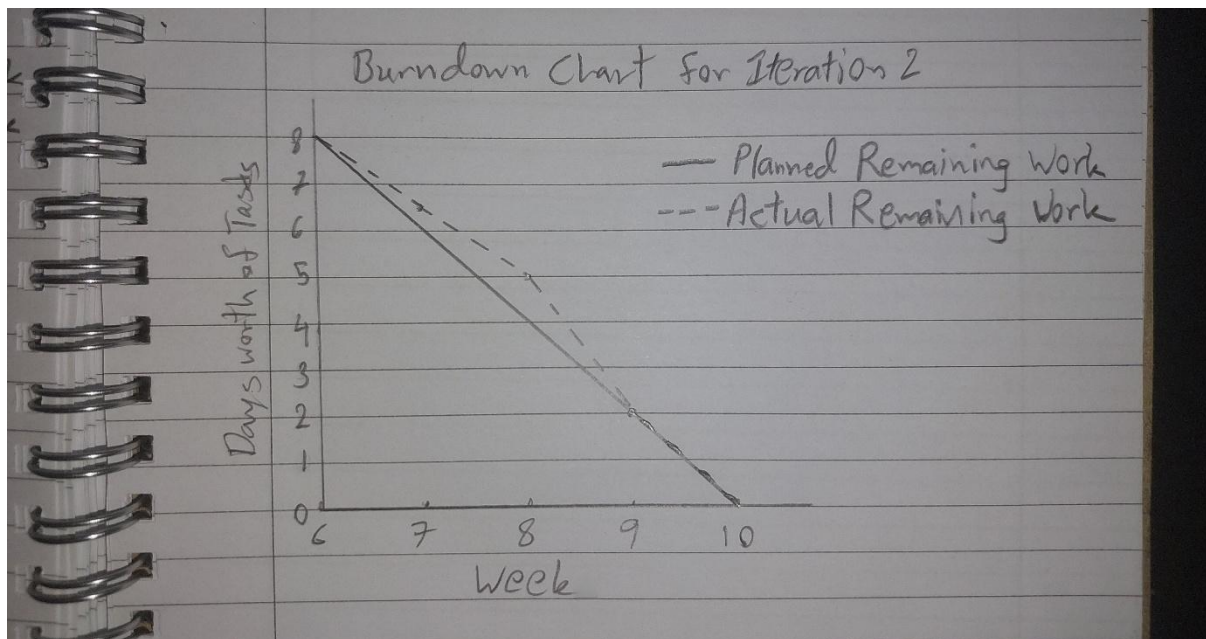 Burndown Chart for Iteration 2
Planned Remaining Work
Actual Remaining Work
Days worth of Tasks
8
7
6
5
4
3
2
1
0
6 7 8 9 10
Week